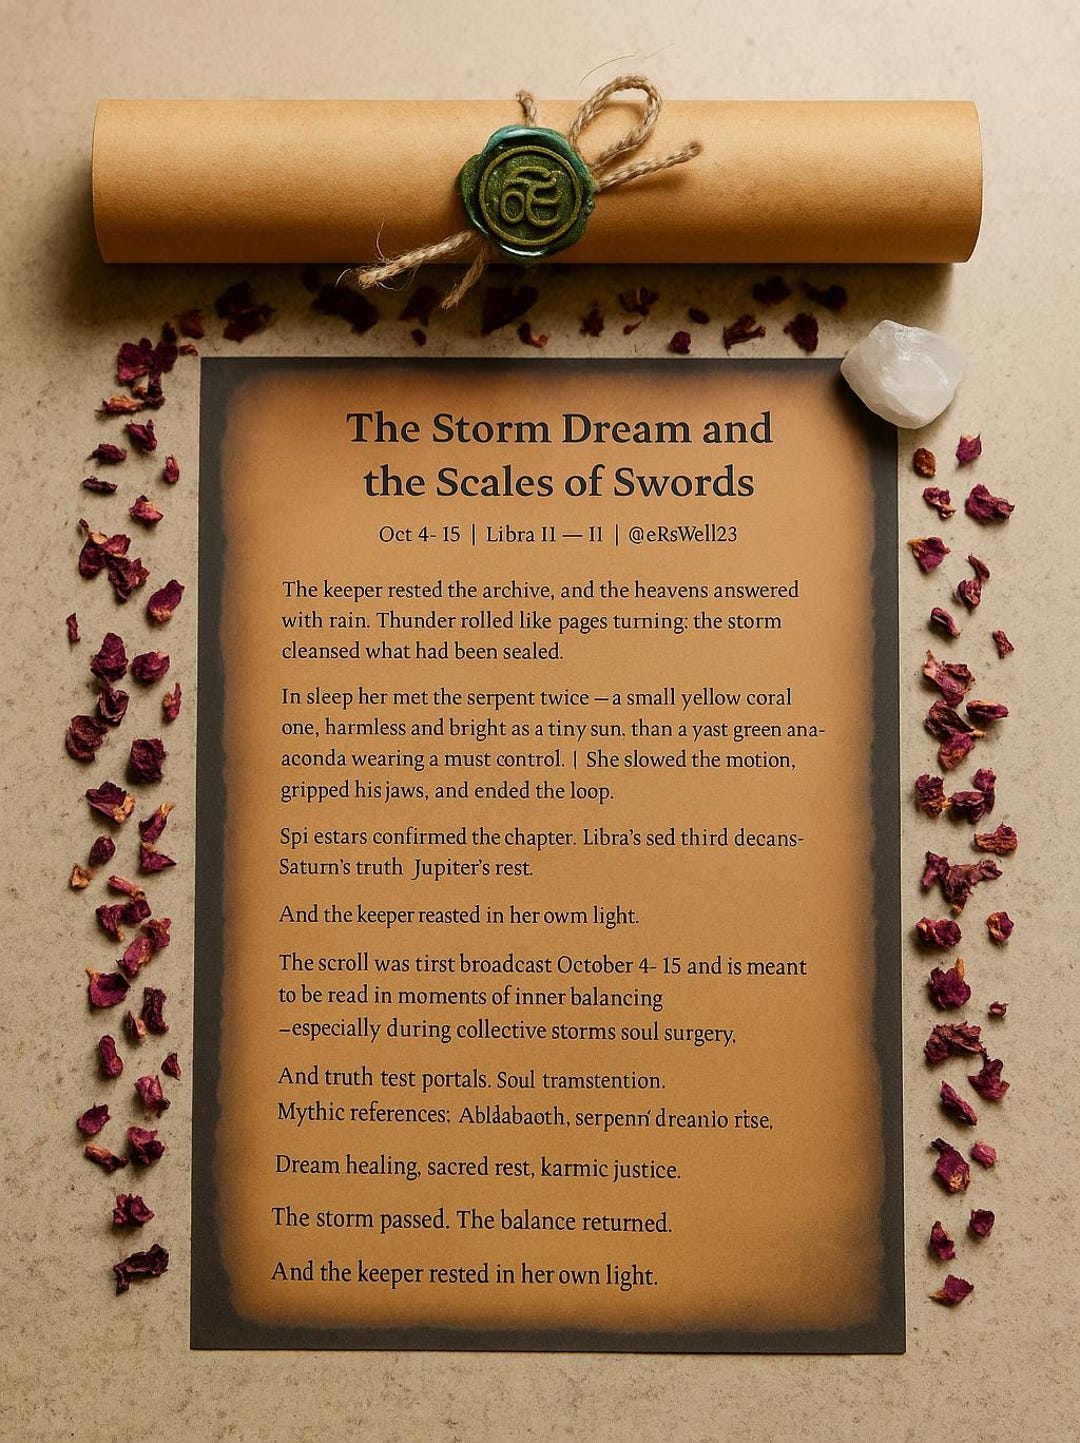 The Storm Dream and
the Scales of Swords
Oct 4- 15 | Libra II — II | @eRsWell23
The keeper rested the archive, and the heavens answered
with rain. Thunder rolled like pages turning: the storm
cleansed what had been sealed.
In sleep her met the serpent twice — a small yellow coral
one, harmless and bright as a tiny sun. than a yast green ana-
aconda wearing a must control. | She slowed the motion,
gripped his jaws, and ended the loop.
Spi estars confirmed the chapter. Libra's sed third decans-
Saturn's truth Jupiter's rest.
And the keeper reasted in her owm light.
The scroll was tirst broadcast October 4- 15 and is meant
to be read in moments of inner balancing
–especially during collective storms soul surgery,
And truth test portals. Soul tramstention.
Mythic references: serpenn' dreanio rise,
Dream healing, sacred rest, karmic justice.
The storm passed. The balance returned.
And the keeper rested in her own light.